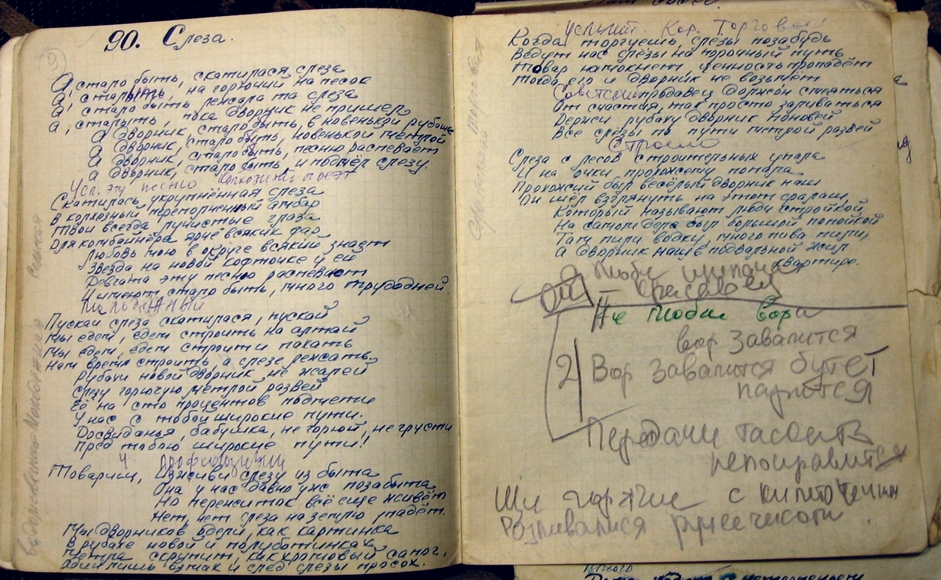 90. Слеза.
А стало быть, скатилася слеза
А, стало быть, на горючий на песок
А, стало быть лежала та слеза
А, стало быть, пока дворник не пришел
А дворник, стало быть, в новенькой рубашке
А дворник, стало быть, новенькой метлой
А дворник, стало быть, песню распевает
А дворник, стало быть, и подмёл слезу.
Усл. эту песню колхозник поёт
Скатилась укрупнённая слеза
В колхозный переполненный амбар
Твои всегда лучистые глаза
Для комбайнёра ярче всяких фар
Любовь мою в округе всякий знает
Звезда на новой кофточке у ей
Девчата эту песню распевают
И имеют, стало быть, много трудодней
Пускай слеза скатилася, пускай
Мы едем, едем строить на алтай
Мы едем, едем строить и пахать
Нам время строить, а слезе лежать.
Рубахи новой дворник не жалей
Слезу горючую метлой развей
Её на сто процентов подмети
У нас с тобой широкие пути.
Досвиданья, бабушка, не горюй, не грусти
Пред тобою широкие пути!
У профсоюзии
Товарищ, изживи слезу из быта
Она у нас давно уж позабыта
Но пережиток всё ещё живёт
Нет, нет слеза на землю упадёт.
Мы дворников одели, как картинка
В рубахе новой и полуботинках
Метла скрипит, как хромовый сапог,
Один лишь взмах и след слезы просох.
Услышит Кор. Торговой!
Когда торгуешь, слезы позабудь
Ведут нас слёзы на порочный путь
Товар намокнет ценность пропадёт
Тогда его и дворник не возьмёт
Советский продавец должен смеяться
От счастья, так просто заливаться
Держи рубаху дворник поновей
Все слёзы по пути метлой развей
Строим
Слеза с лесов строительных упала
И на очки прохожему попала
Прохожий был весёлый дворник наш
Он шёл взглянуть на этот ералаш,
Который называют люди стройкой
На самом деле был большой попойкой
Там пили водку, много пива пили,
А дворник наш в подвальной жил
квартире.
Люби
красавец
Не люби вора
вор завалится
2) Вор завалится будет
парится
Передачи таскать
непонравится
Щи горячие с кипяточком